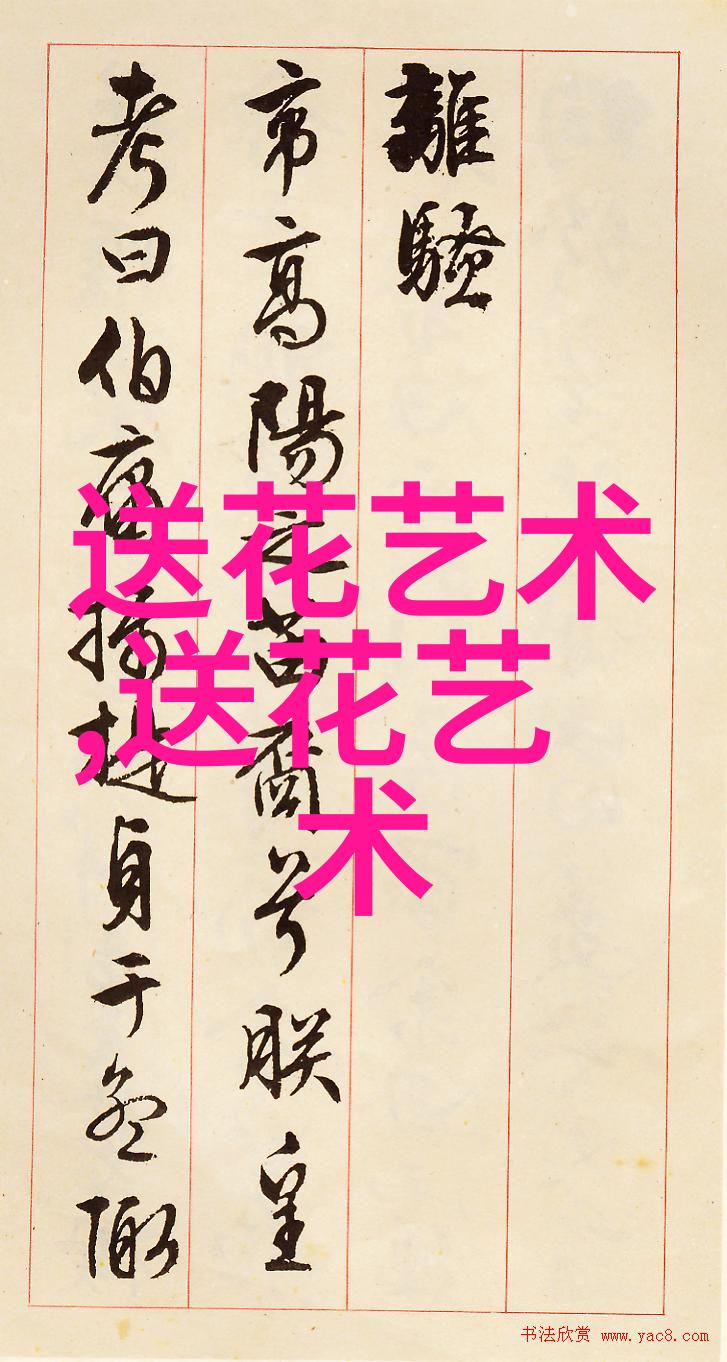 離騷
帝高陽之苗裔兮朕皇
考曰伯庸攝提貞于孟陬
送花艺术
,送花艺
术
书法欣赏 www.yac8.com